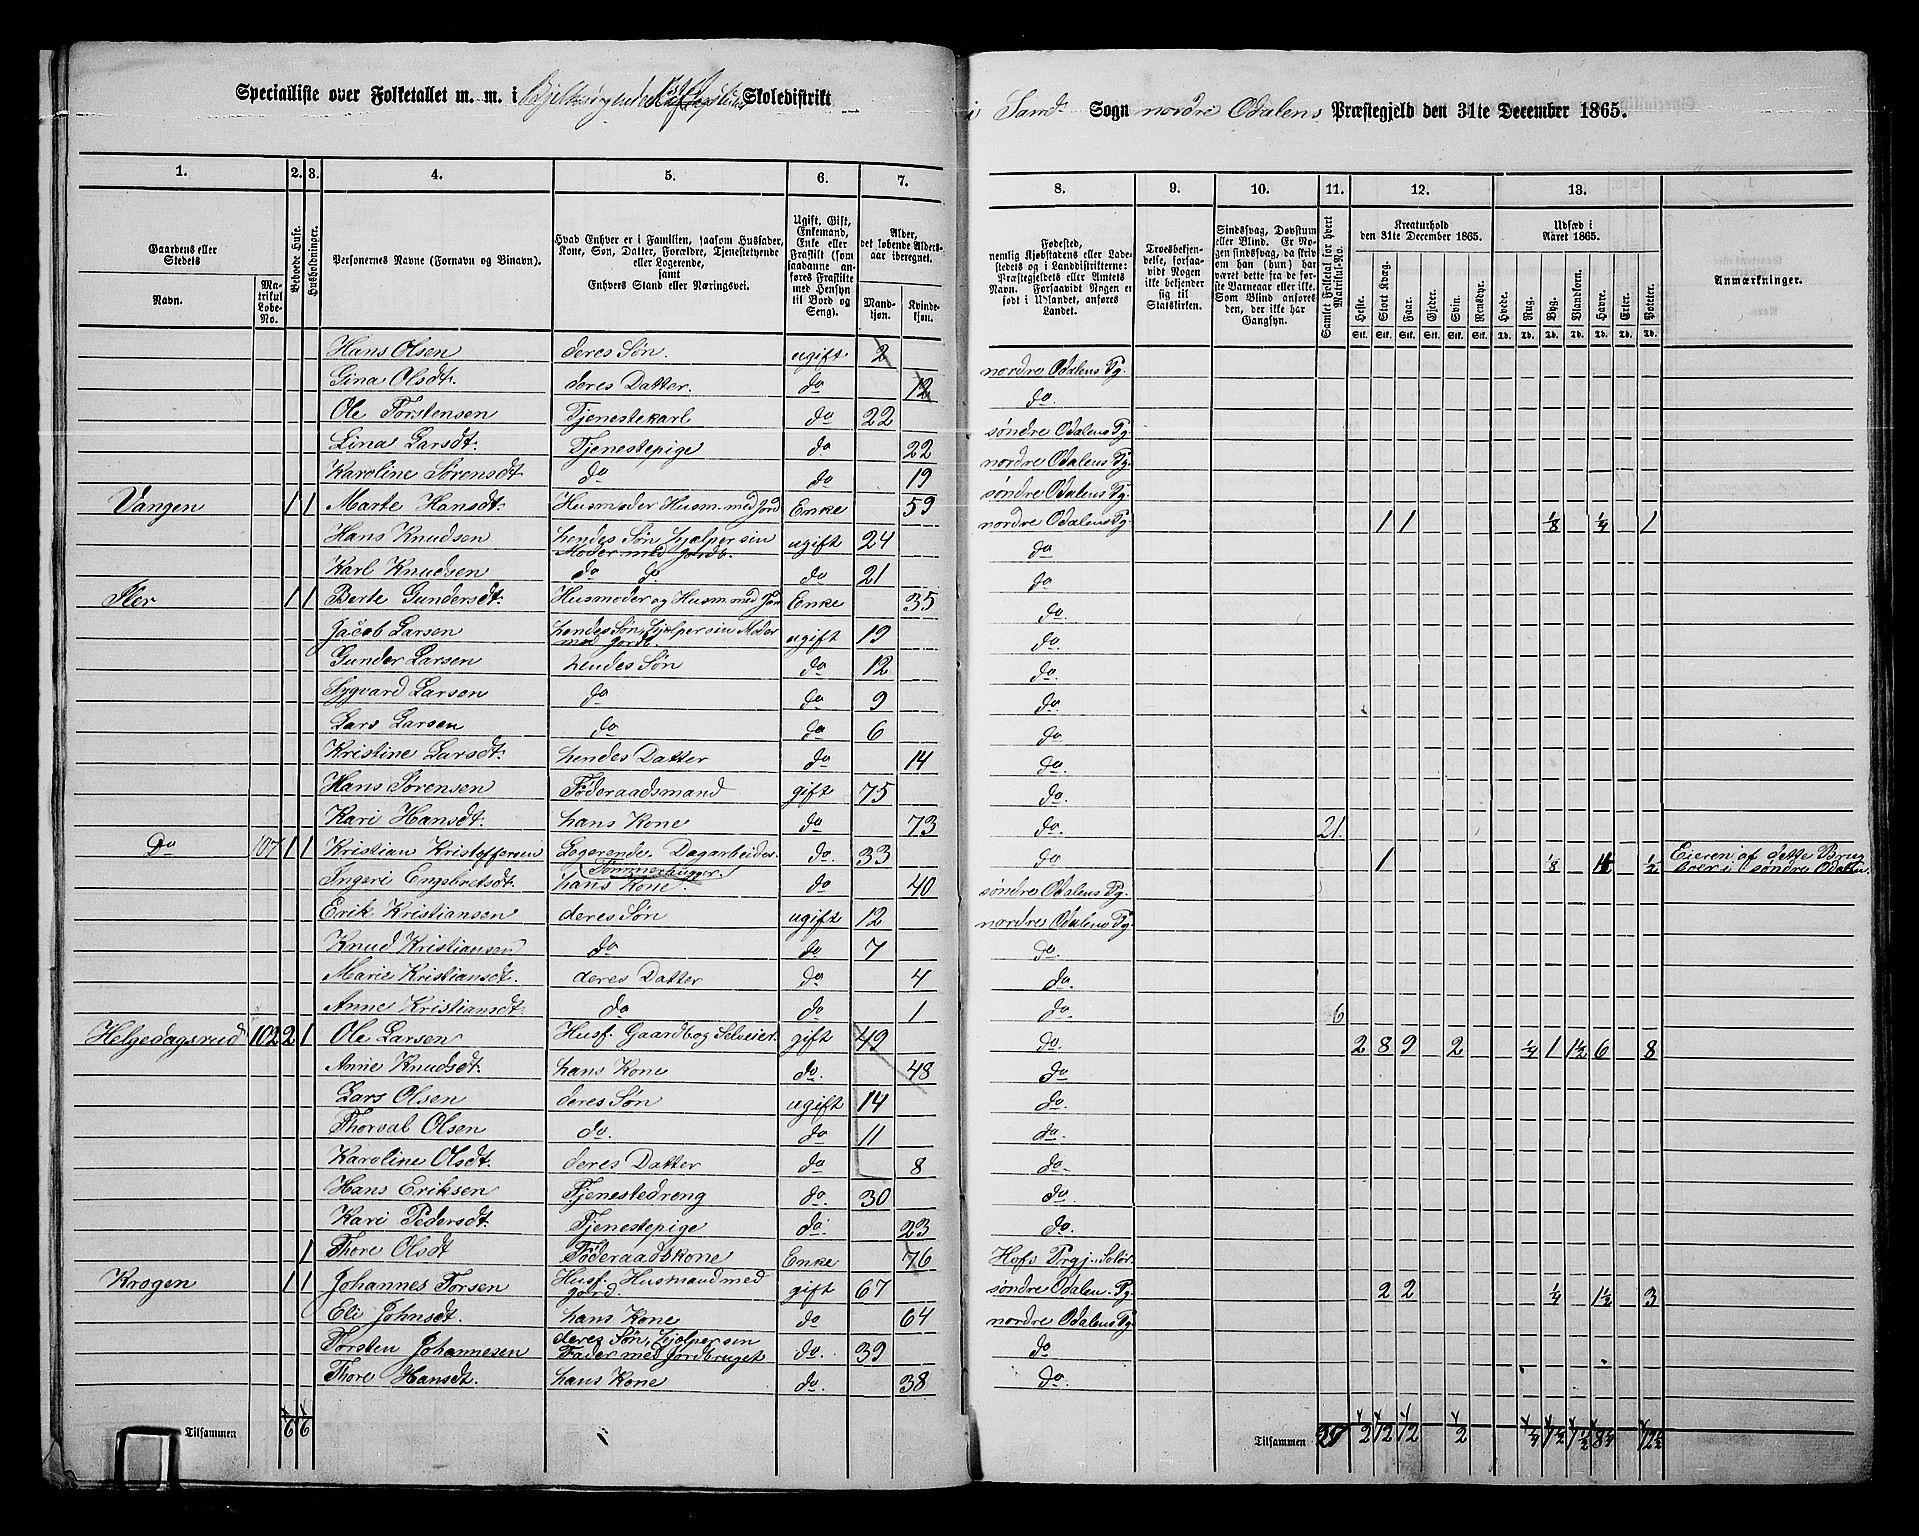 Specialliste over Folketallet m. m. i Skoledistrikt
i Sand Sogn nordre Odalens Præstegjeld den 31te December 1865.
1. 2. 3. 4. 5. 6. 7. 8. 9. 10. 11. 12. 13.
Gaardens eller Stedets
Navn.
Matrikul Løbe-No.
Beboede Huse.
Husholdninger.
Personernes Navne (Fornavn og Binavn).
Hvad Enhver er i Familien, saasom Husfader, Kone, Søn, Datter, Forældre, Tjenestetyende eller Logerende,
samt
Enhvers Stand eller Næringsvei.
Ugift, Gift, Enkemand, Enke eller Fraskilt (som saadanne anføres Fraskilte med Hensyn til Bord og Seng).
Alder, det løbende Aldersaar iberegnet.
Mandkjøn.
Kvindekjøn.
Fødested,
nemlig Kjøbstadens eller Ladestedets og i Landdistrikterne: Præstegjeldets eller Amtets Navn. Forsaavidt Nogen er født i Udlandet, anføres Landet.
Troesbekjendelse, forsaavidt Nogen ikke bekjender sig til Statskirken.
Sindssvag, Døvstum eller Blind. Er Nogen sindssvag, da skriv om han (hun) har været dette fra de første Barneaar eller ikke. Som Blind anføres den, der ikke har Gangsyn.
Samlet Folketal for hvert Matrikul-No.
Kreaturhold
den 31te December 1865.
Heste. Stort Kvæg. Faar. Gjeder. Svin. Rensdyr.
Stk. Stk. Stk. Stk. Stk. Stk.
Udsæd i
Aaret 1865.
Hvede. Rug. Byg. Blandkorn. Havre. Erter. Poteter.
Td. Td. Td. Td. Td. Td. Td.
Anmærkninger.
Hans Olsen deres Søn ugift 2 nordre Odalens Pg.
Gina Olsdt. deres Datter. do 12 do.
Ole Torstensen Tjenestekarl do 22 søndre Odalens Pg.
Lina Larsdt. Tjenestepige do 22 nordre Odalens Pg.
Karoline Sørensdt do do 19 søndre Odalens Pg.
Vangen 1 1 Marte Hansdt. Husmoder Husm. med Jord Enke 59 nordre Odalens Pg. 1 1 1/8 1/4 1
Hans Knudsen hendes Søn hjelper sin Moder med jordb. ugift 24 do
Karl Knudsen do do do 21 do
Iler 1 1 Berte Gundersdt. Husmoder og Husm. med Jor Enke 35 do
Jacob Larsen hendes Søn, hjelper sin Moder med jordb. ugift 19 do.
Gunder Larsen hendes Søn do 12 do
Sygvard Larsen do do 9 do.
Lars Larsen do do 6 do
Kristine Larsdt. hendes Datter do 14 do.
Hans Sørensen Føderaadsmand gift 75 do.
Kari Hansdt. hans Kone do 73 do. 21.
Do 107 1 1 Kristian Kristoffersen Logerende, Dagarbeider Tømmerhugger do. 33 do 1 1/8 1/2 Eieren af dette Brug boer i søndre Odalen.
Ingeri Engebretsdt. hans Kone. do 40 søndre Odalens Pg.
Erik Kristiansen deres Søn ugift 12 nordre Odalens Pg.
Knud Kristiansen do do 7 do.
Marie Kristiansdt. deres Datter do 4 do.
Anne Kristiansdt. do do 1 do 6
Helgedagsrud 102 2 1 Ole Larsen Husf. Gaardb og Selveier. gift 49 do. 2 8 9 2 1/4 1 1 1/2 6 8
Anne Knudsdt. hans Kone do. 48 do
Lars Olsen deres Søn ugift 14 do.
Thorval Olsen do. do 11 do.
Karoline Olsdt. deres Datter do 8 do.
Hans Eriksen Tjenestedreng do. 30 do.
Kari Pedersdt. Tjenestepige do 23 do.
1 Thore Olsdt Føderaadskone Enke 76 Hofs Prgj. Solør
Krogen 1 1 Johannes Torsen Husf. Husmand med jord. gift 67 søndre Odalen. Pg. 2 2 1/4 1 1/2 3
Eli Johnsdt. hans Kone do 64 nordre Odalens Pg
Torsten Johannesen deres Søn, hjelper sin Fader med Jordbruget do. 39 do
Thore Hansdt. hans Kone do. 38 do.
Tilsammen 6 6
Tilsammen 27 2 12 12 2 1/4 1 1/2 1 1/2 8 1/4 12 1/2